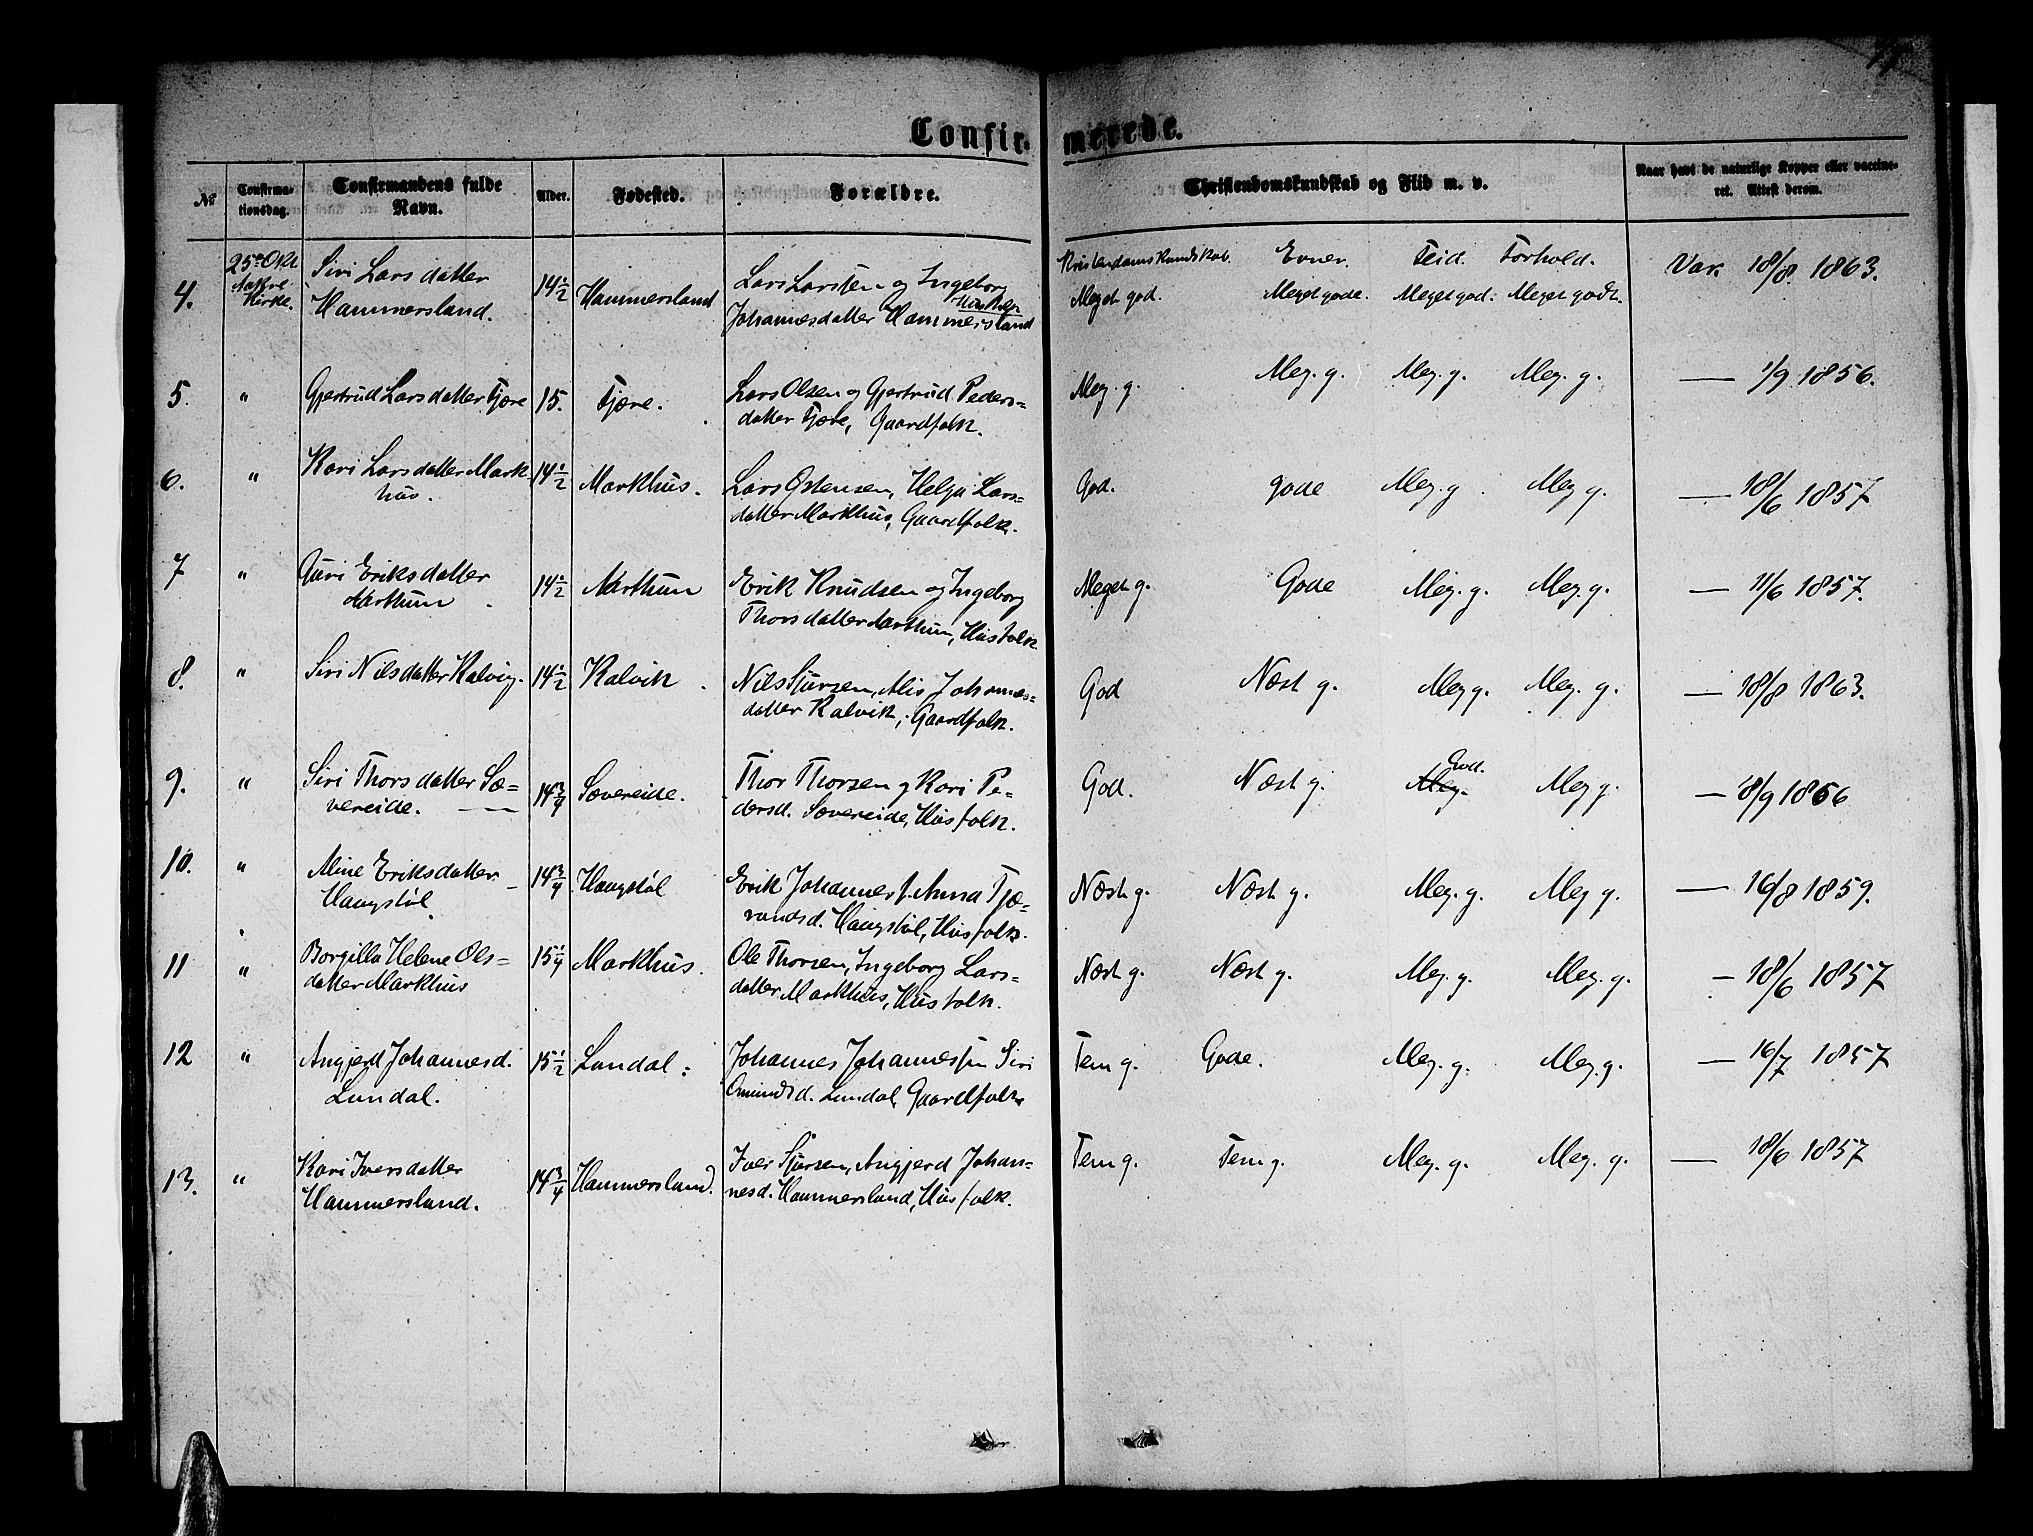 Confirmerede.
№ Confirmationsdag. Confirmandens fulde Navn. Alder. Fødested. Forældre. Christendomskundskab og Flid m. v. Naar havt de naturlige Kopper eller vaccineret. Attest derom.
4. 25de Okt. Kirke. Siri Larsdatter Hammersland. 14 1/2 Hammersland Lars Larssen og Ingeborg Johannesdatter Hammersland Kristendomskundskab. Meget god. Evner. Meget gode. Fleid. Meget god. Forhold. Meget godt. Vak. 18/8. 1863.
5. " Gjertrud Larsdatter Fjære 15. Fjære. Lars Olsen og Gjertrud Peders=
datter Fjære, Gaardfolk. Meg. g. Meg. g. Meg. g. Meg. g. — 1/9 1856.
6. " Kari Larsdatter Mark-
hus. 14 1/2 Markhus. Lars Østensen, Helga Lars=
datter Markhus, Gaardfolk. God. gode Meg. g. Meg g. — 18/6 1857
7 " Guri Eriksdatter
Aarthun. 14 1/2 Aarthun Erik Knudsen og Ingeborg
Thorsdatter Aarthun, Husfolk Meget g. Gode Meg. g. Meg. g. — 11/6 1857.
8. " Siri Nilsdatter Kalvig. 14 1/2 Kalvik. Nils Sjursen, Alis Johannes=
datter Kalvik, Gaardfolk. God Næst g. Meg g. Meg. g. — 18/8 1863.
9. " Siri Thorsdatter Sæ=
vereide. — 14 3/4 Sævereide. Thor Thorsen og Kari Pe=
dersd. Sævereide, Husfolk. God. Næst g. Meg. God. Meg g. — 18/9 1856
10. " Aline Eriksdatter
Haugstøl. 14 3/4 Haugstøl Erik Johannesf. Anna Tjæ=
randsd. Haugstøl, Husfolk. Næst g. Næst g. Meg. g. Meg g. — 16/8 1859.
11 " Borgilla Helene Ols=
datter Markhus 15 1/4 Markhus. Ole Thorsen, Ingeborg Lars=
datter Markhus, Husfolk. Næst g. Næst g. Meg. g. Meg. g. — 18/6 1857
12 " Angjerd Johannesd.
Lundal. 15 1/2 Lundal. Johannes Johannessen Siri
Omundsd. Lundal Gaardfolk Tem g. Gode. Meg. g. Meg. g. — 16/7 1857
13. " Kari Iversdatter
Hammersland. 14 3/4 Hammersland. Iver Sjursen, Angjerd Johan=
nesd. Hammersland, Husfolk. Tem g. Tem g. Meg. g. Meg. g. — 18/6 1857